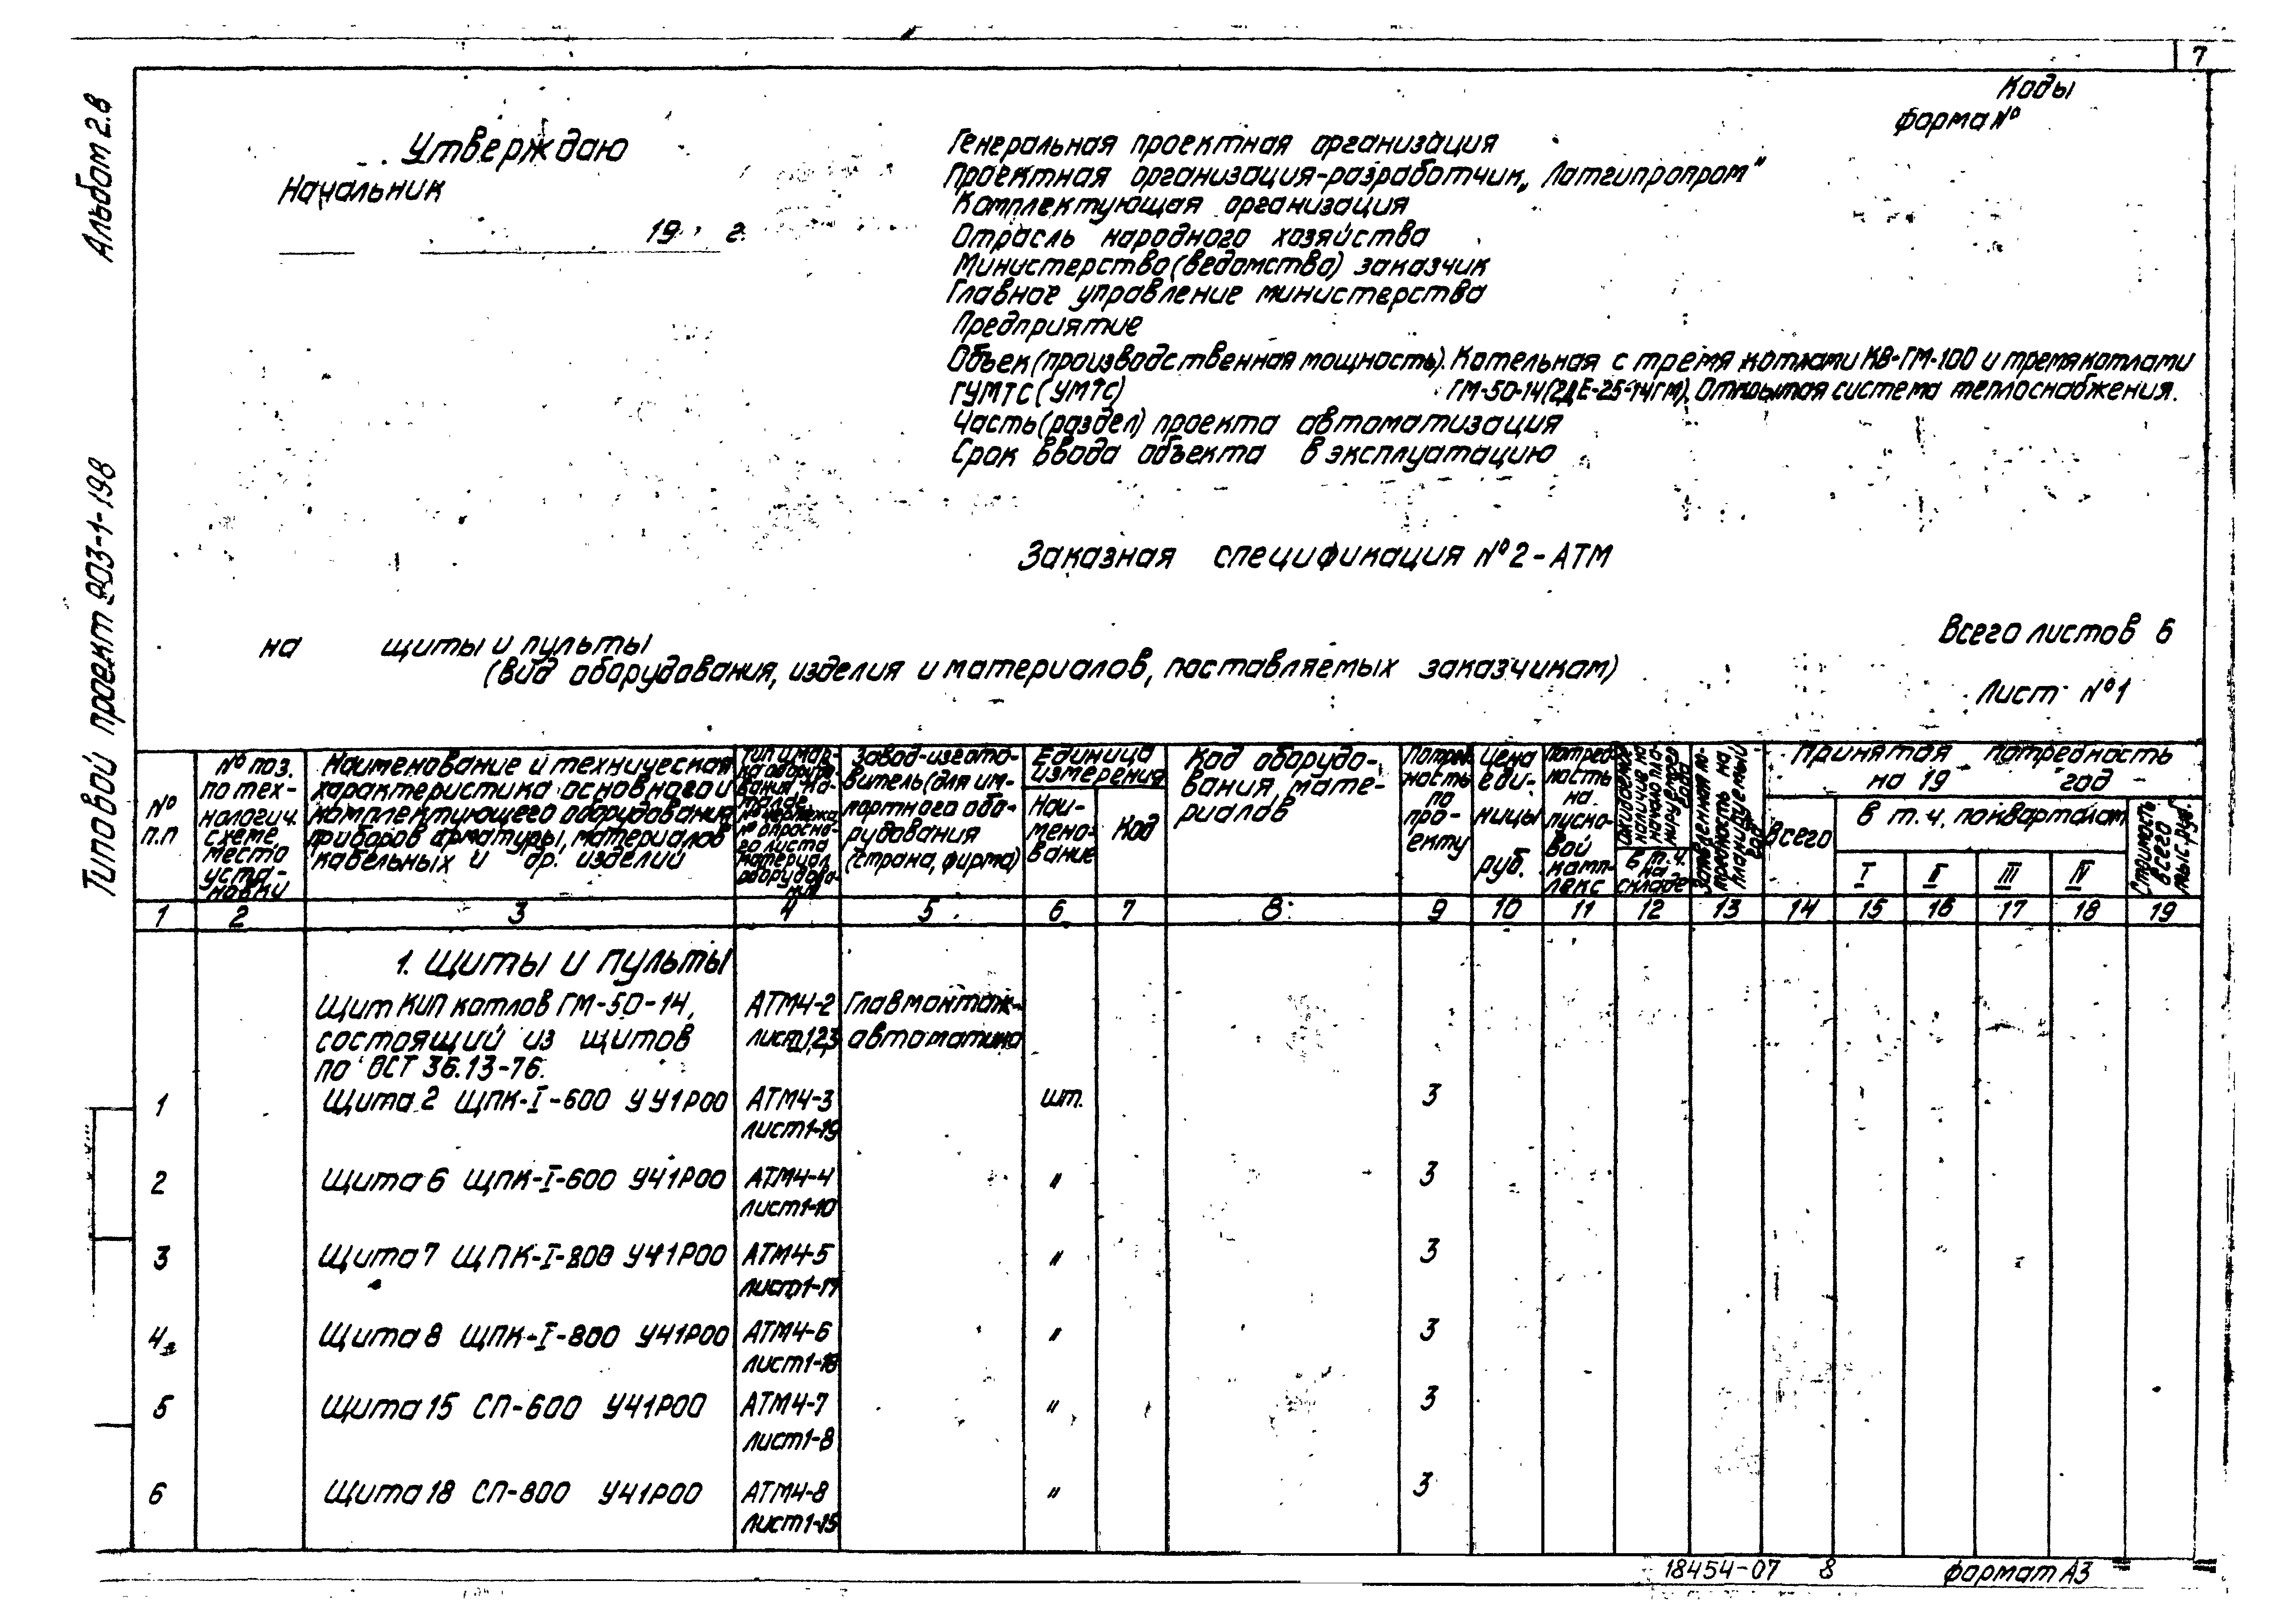 7
Коды
форма №
Альбом 2.8
Типовой проект 903-1-198
Утверждаю
Начальник
19 г.
Генеральная проектная организация
Проектная организация-разработчик „Латгипропром"
Комплектующая организация
Отрасль народного хозяйства
Министерство (ведомство) заказчик
Главное управление министерства
Предприятие
Объек (производственная мощность). Котельная с тремя котлами КВ-ГМ-100 и тремя котлами
ГУМТС (УМТС) ГМ-50-14(2ДЕ-25-14ГМ). Открытая система теплоснабжения.
Часть (раздел) проекта автоматизация
Срок ввода объекта в эксплуатацию
Заказная спецификация №2-АТМ
на щиты и пульты
(вид оборудования, изделия и материалов, поставляемых заказчикам)
Всего листов 6
Лист №1
№ п.п
№ поз. по тех-нологич. схеме, место уста-новки
Наименование и техническая
характеристика основного и
комплектующего оборудования,
приборов арматуры, материалов
кабельных и др. изделий
Тип и мар-
ка оборудо-
вания, ка-
талог,
№ чертежа
№ опросно-
го листа
материал
оборудова-
ния
Завод-изгото-
витель (для им-
портного обо-
рудования
(страна, фирма)
Единица
измерения
Наи-
мено-
вание
Код
Код оборудо-
вания, мате-
риалов
Потреб
ность
по
про-
екту
Цена
еди-
ницы
руб.
Потреб-
ность
на
пуско-
вой
комп-
лекс
Ожидаемое
наличие на
начало пла-
нируемого
года
в т.ч.
на
складе
Заявленная по-
требность на
планируемый
год
Принятая потребность
на 19 год
Всего
в т.ч. по кварталам
I II III IV
Стоимость
всего
тыс. руб.
1 2 3 4 5 6 7 8 9 10 11 12 13 14 15 16 17 18 19
1. Щиты и пульты
Щит КИП котлов ГМ-50-14, АТМ4-2 Главмонтаж-
состоящий из щитов лист 1,2,3 автоматика
по ОСТ 36.13-76.
1 Щита 2 ЩПК-I-600 УУ1Р00 АТМ4-3 шт. 3
лист 1-19
2 Щита 6 ЩПК-I-600 У41Р00 АТМ4-4 " 3
лист 1-10
3 Щита 7 ЩПК-I-800 У41Р00 АТМ4-5 " 3
лист 1-17
4 Щита 8 ЩПК-I-800 У41Р00 АТМ4-6 " 3
лист 1-18
5 Щита 15 СП-600 У41Р00 АТМ4-7 " 3
лист 1-8
6 Щита 18 СП-800 У41Р00 АТМ4-8 " 3
лист 1-15
18454-07 8 формат А3